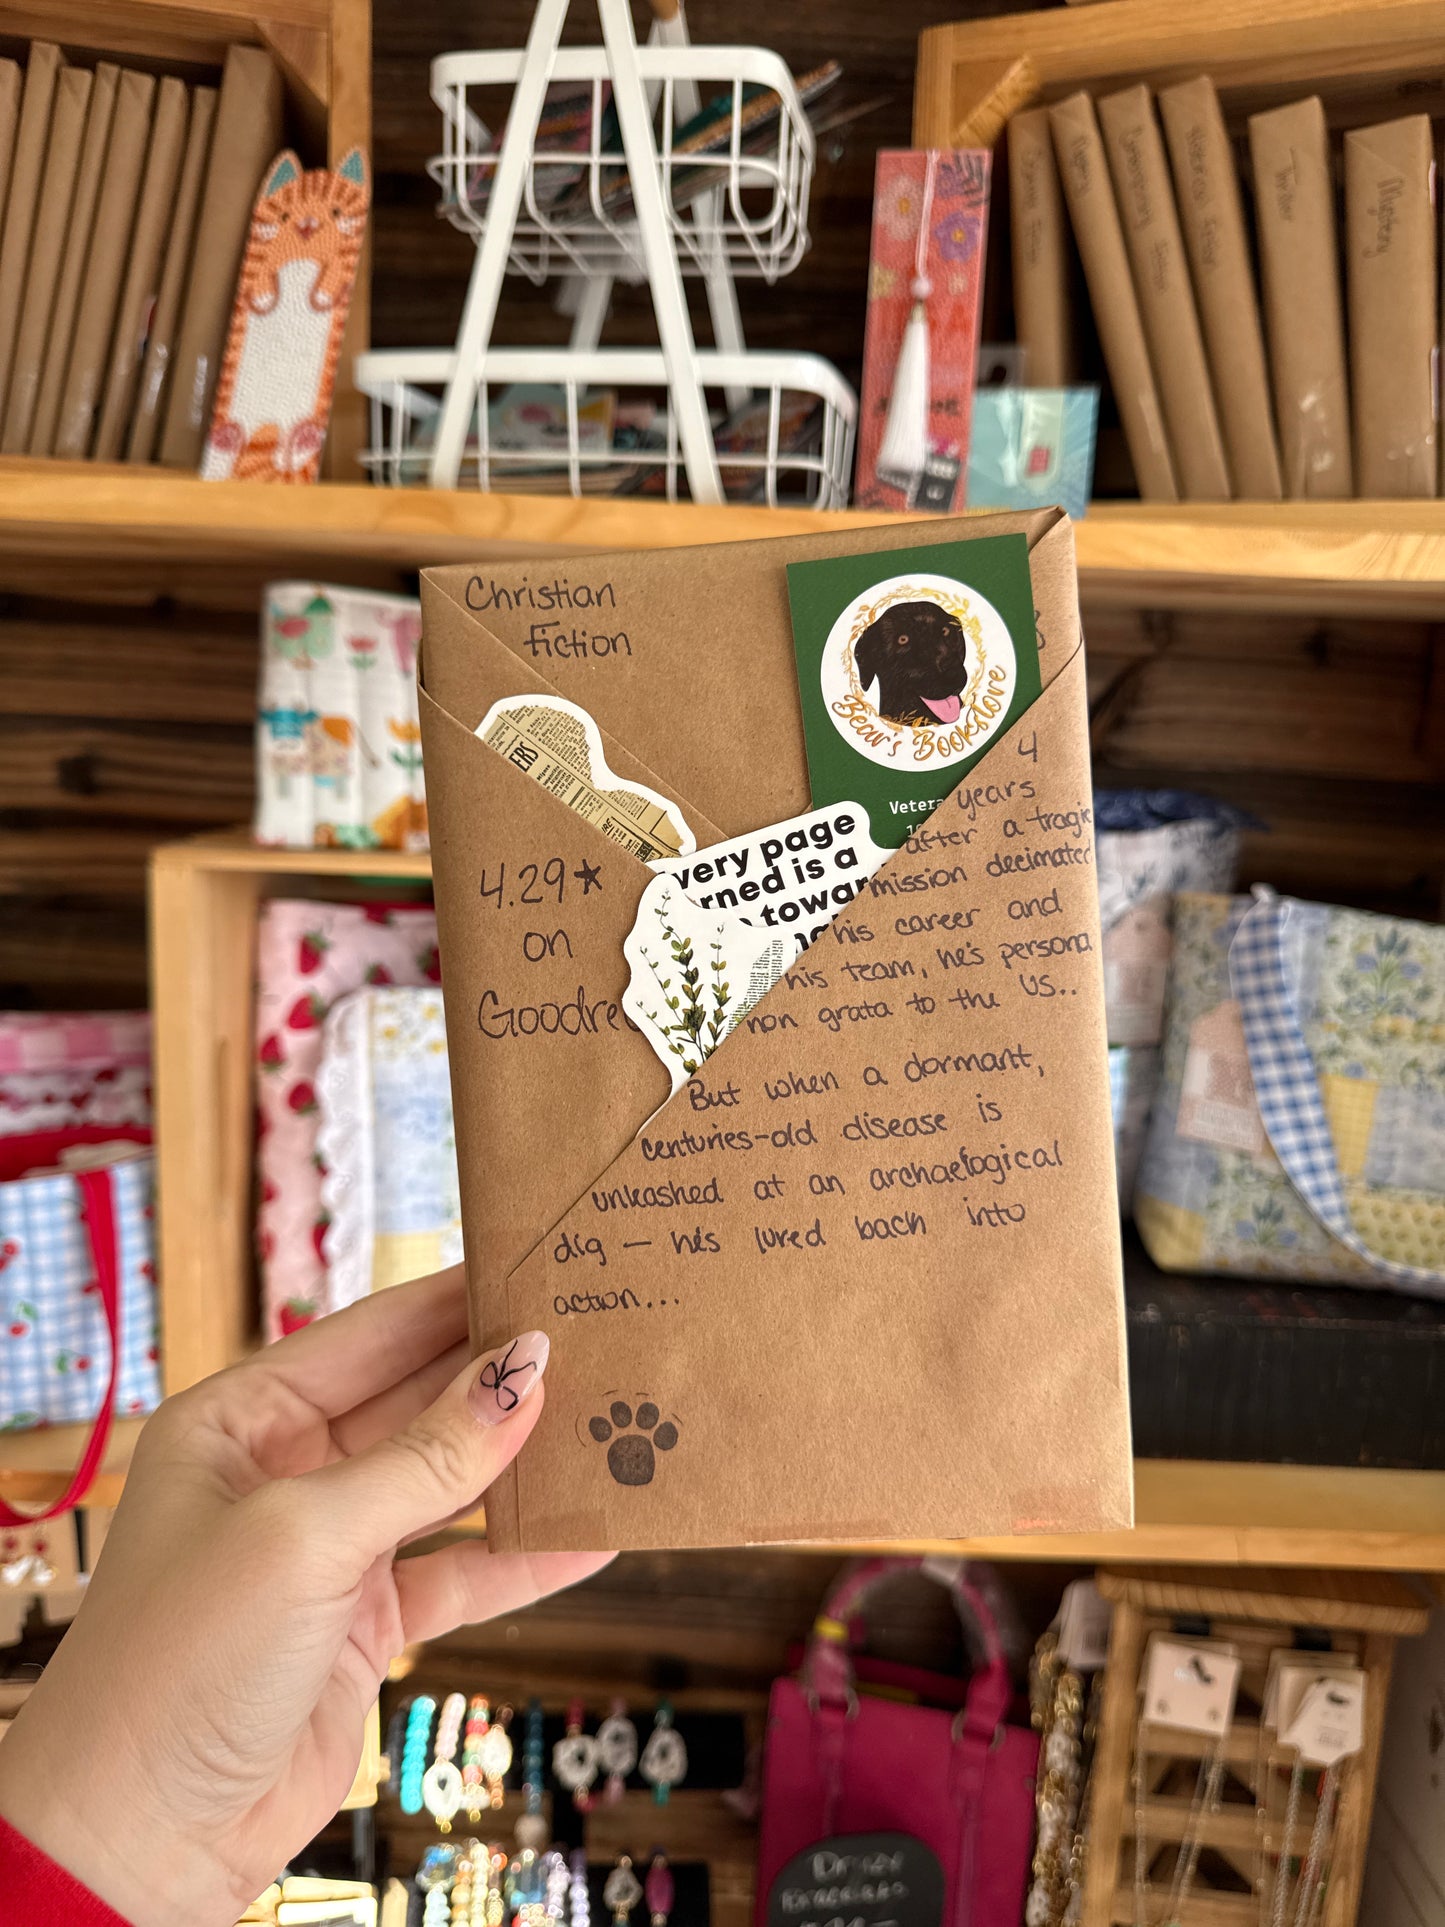 Mystery
Thriller
Historical Fiction
Christian
Fiction
Bear's Bookstore
Vetera
4.29★
on
Goodre
ERS
very page
rned is a
towar
4
years
after a tragic
mission decimated
his career and
his team, he's persona
non grata to the US..
But when a dormant,
centuries-old disease is
unleashed at an archaelogical
dig — he's lured back into
action...